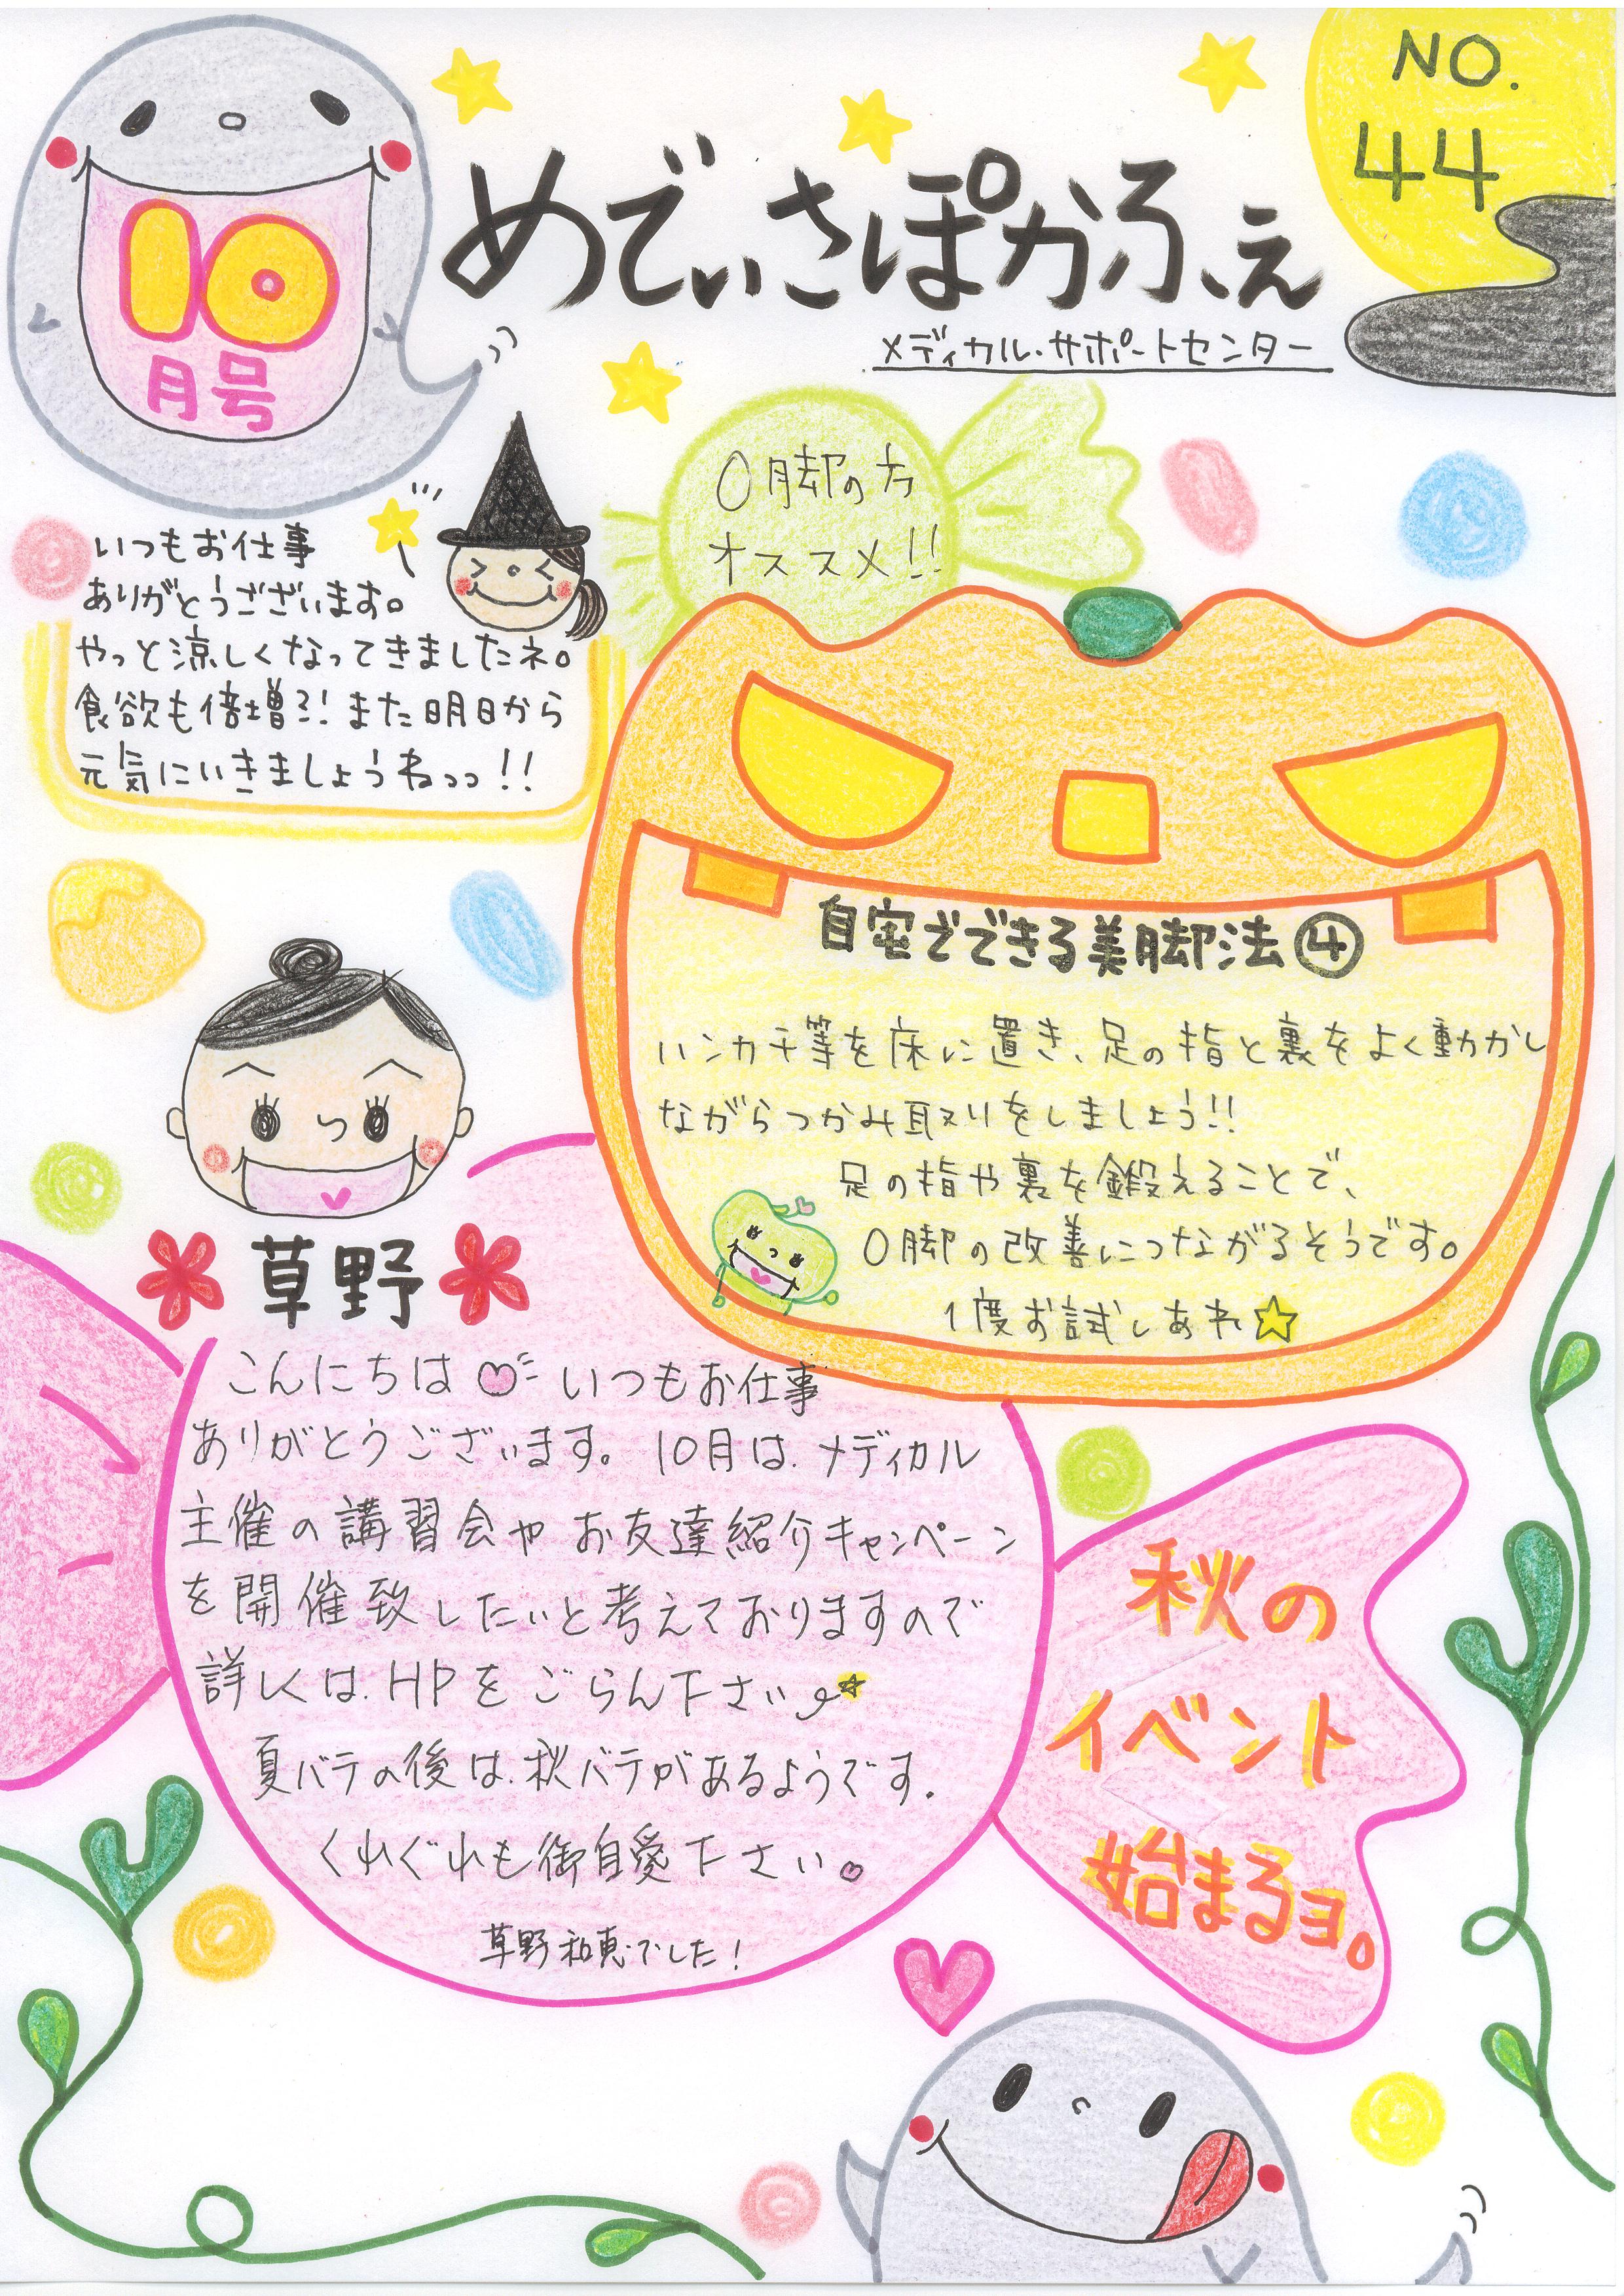 NO.
44
10
月号
めでぃさぽかふぇ
メディカル・サポートセンター
いつもお仕事
ありがとうございます。
やっと涼しくなってきましたネ。
食欲も倍増?! また明日から
元気にいきましょうねっっ!!
O脚の方
オススメ!!
自宅でできる美脚法④
ハンカチ等を床に置き、足の指と裏をよく動かし
ながらつかみ取りをしましょう!!
足の指や裏を鍛えることで、
O脚の改善につながるそうです。
1度お試しあれ☆
草野
こんにちは♡ いつもお仕事
ありがとうございます。10月は、メディカル
主催の講習会や お友達紹介キャンペーン
を開催致したいと考えておりますので
詳しくは、HPをごらん下さい☆
夏バテの後は、秋バテがあるようです。
くれぐれも御自愛下さい。♡
草野和恵でした!
秋の
イベント
始まるヨ。